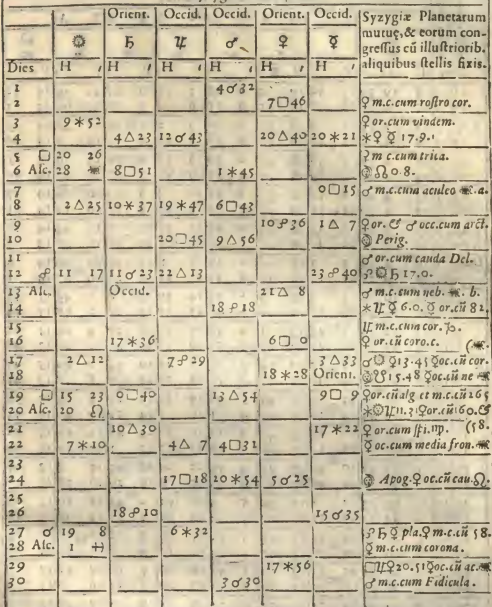 Orient. Occid. Occid. Orient. Occid. Syzygiæ Planetarum
☉ ♄ ♃ ♂ ♀ ☿ mutuę, & eorum con-
greſſus cū illuſtriorib.
Dies H ′ H ′ H ′ H ′ H ′ H ′ aliquibus ſtellis fixis.
1 4☌32
2 7□46 ♀ m.c.cum roſtro cor.
3 9⚹52 ♀ or.cum vindem.
4 4△23 12☌43 20△40 20⚹21 ⚹♀☿ 17.9.
5 □ 20 26 m c.cum trica.
6 Aſc. 28 8□51 1⚹45 ☊ 0.8.
7 0□15 ♂ m.c.cum aculeo a.
8 2△25 10⚹37 19⚹47 6□43
9 10☍36 1△7 ♀or. & ♂ occ.cum arct.
10 20□45 9△56 Perig.
11 ♂ or.cum cauda Del.
12 ☍ 11 17 11☌23 22△13 23☍40 ☍☉♄ 17.0.
13 Aſc. Occid. 21△8 ♂ m.c.cum neb. b.
14 18☍18 ⚹♃☿ 6.0. ☿ or.cū 81.
15 ♃ m.c.cum cor. ♑.
16 17⚹36 6□0 ♀ or.cū coro.c.
17 2△12 7☍29 3△33 ☌☉☿ 13.45 ♀oc.cū cor.
18 18⚹28 Orient. ☋ 15.48 ♀oc.cū ne
19 □ 15 23 0□40 13△54 9□9 ♀or.cū alg et m.c.cū 265
20 Aſc. 20 ♌ ⚹☉♃ 11.3
21 10△30 17⚹22 ♀ or.cum ſpi.♍. (58.
22 7⚹10 4△7 4□31 ☿ oc.cum media fron.
23
24 17□18 20⚹54 5☌25 Apog. ☿ oc.cū cau.♌.
25
26 18☍10 15☌35
27 ☌ 19 8 6⚹32 ☍♄☿ pla.♀ m.c.cū 58.
28 Aſc. 1 ♓ ☿ m.c.cum corona.
29 17⚹56 □♃♀ 20.51 ♀oc.cū ac.
30 3☌30 ♂ m.c.cum Fidicula.